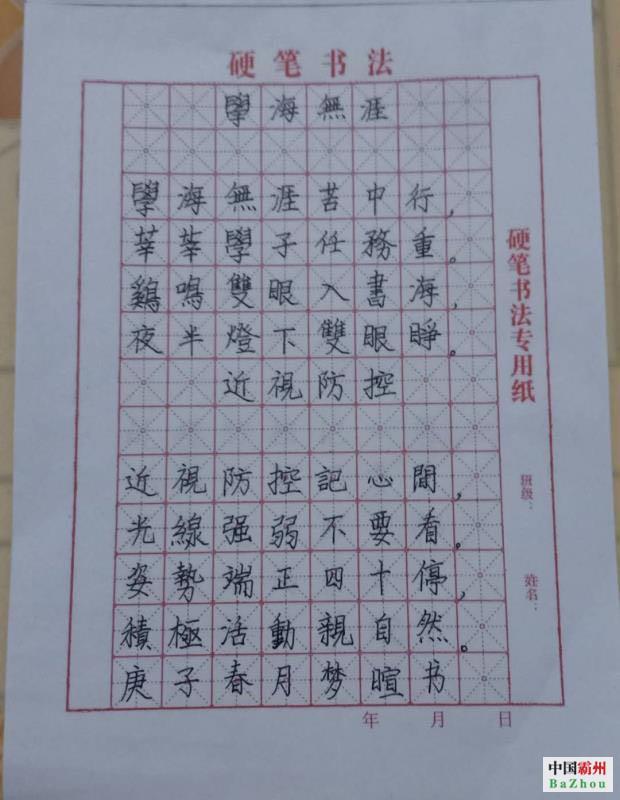 硬笔书法
學海無涯
學海無涯苦中行，
莘莘學子任務重。
鷄鳴雙眼入書海，
夜半燈下雙眼睁。
近視防控
近視防控記心間，
光線强弱不要看。
姿勢端正四十停，
積極活動親自然。
庚子春月梦暄书
硬笔书法专用纸
班级：
姓名：
年 月 日
中国霸州
BaZhou